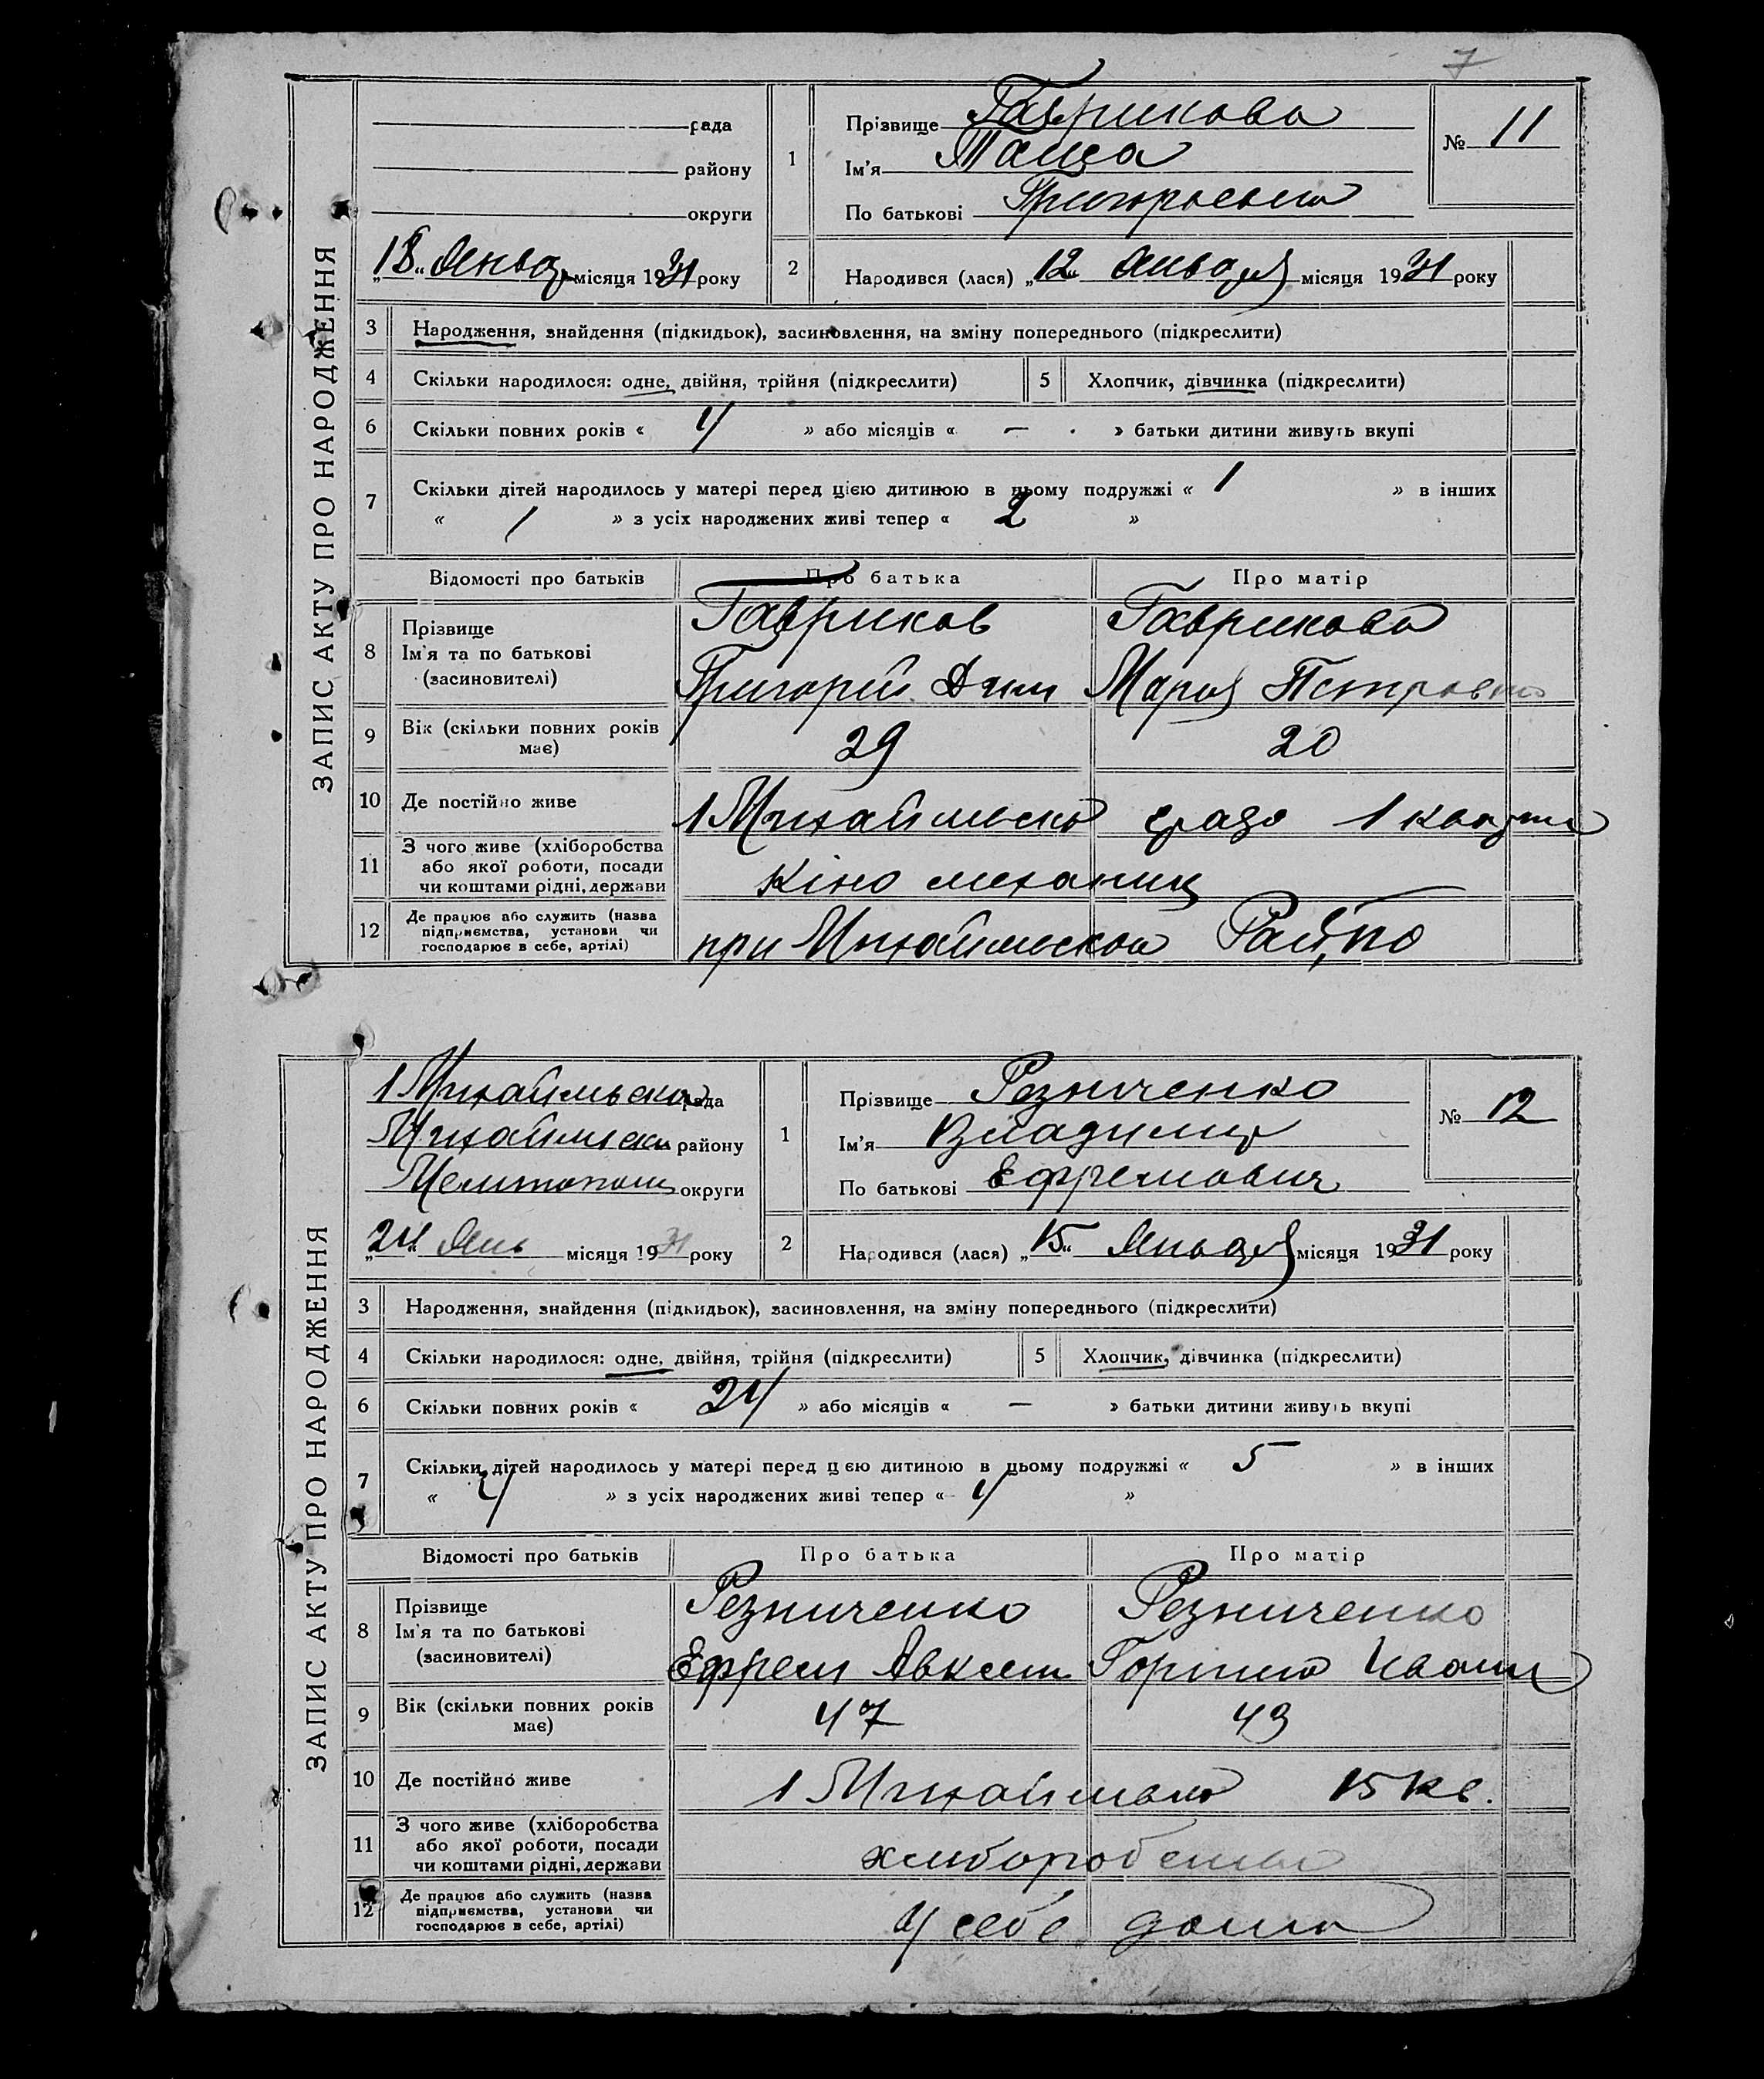 7
ЗАПИС АКТУ ПРО НАРОДЖЕННЯ
рада
району
округи
„18“ Января місяця 1931 року
1
Прізвище Гаврикова
Ім'я Таиса
По батькові Григорьевна
№ 11
2
Народився (лася) „12“ Января місяця 1931 року
3 Народження, знайдення (підкидьок), засиновлення, на зміну попереднього (підкреслити)
4 Скільки народилося: одне, двійня, трійня (підкреслити) 5 Хлопчик, дівчинка (підкреслити)
6 Скільки повних років « 4 » або місяців « — » батьки дитини живуть вкупі
7 Скільки дітей народилось у матері перед цією дитиною в цьому подружжі « 1 » в інших
« / » з усіх народжених живі тепер « 2 »
Відомості про батьків Про батька Про матір
8 Прізвище Гавриков Гаврикова
Ім'я та по батькові Григорий Дим Мария Петровна
(засиновителі)
9 Вік (скільки повних років має) 29 20
10 Де постійно живе 1 Михайлівська 1
11 З чого живе (хліборобства
або якої роботи, посади
чи коштами рідні, держави
Кіно механик
12 Де працює або служить (назва
підприємства, установи чи
господарює в себе, артілі)
при Михайлівском
ЗАПИС АКТУ ПРО НАРОДЖЕННЯ
1 Михайльська рада
Михайльск району
Мелитопол округи
„24“ Янь місяця 1931 року
1
Прізвище Резниченко
Ім'я Владимир
По батькові Ефремович
№ 12
2
Народився (лася) „15“ Января місяця 1931 року
3 Народження, знайдення (підкидьок), засиновлення, на зміну попереднього (підкреслити)
4 Скільки народилося: одне, двійня, трійня (підкреслити) 5 Хлопчик, дівчинка (підкреслити)
6 Скільки повних років « 24 » або місяців « — » батьки дитини живуть вкупі
7 Скільки дітей народилось у матері перед цією дитиною в цьому подружжі « 5 » в інших
« » з усіх народжених живі тепер « 4 »
Відомості про батьків Про батька Про матір
8 Прізвище Резниченко Резниченко
Ім'я та по батькові Ефрем Авксен Горпина Иван
(засиновителі)
9 Вік (скільки повних років має) 47 43
10 Де постійно живе 1 Михайлівка 15 кв.
11 З чого живе (хліборобства
або якої роботи, посади
чи коштами рідні, держави
хліборобство
12 Де працює або служить (назва
підприємства, установи чи
господарює в себе, артілі)
у себе дома